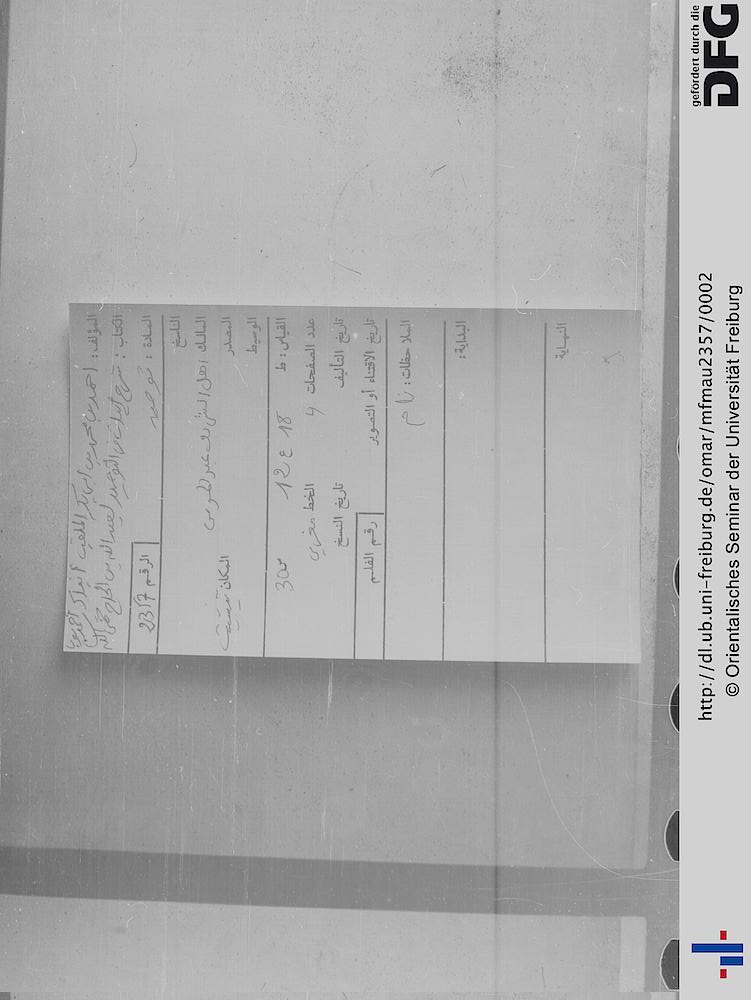 المؤلف: احمد بن محمد بن ابي بكر الملقب
الكتاب: شرح ابيات في التوحيد لعبد الله بن الحاج حمى الله
المادة: توحيد الرقم 2317
الناسخ
المالك اهل الشريف عبد المومن
المصدر المكان تيشيت
الوسيط
القياس: ط 18 ع 12 30س
عدد الصفحات 4 الخط مغربي
تاريخ التأليف تاريخ النسخ
تاريخ الاقتناء أو التصوير رقم الفلم
الملاحظات: تام
البداية:
النهاية
gefördert durch die
DFG
http://dl.ub.uni-freiburg.de/omar/mfmau2357/0002
© Orientalisches Seminar der Universität Freiburg